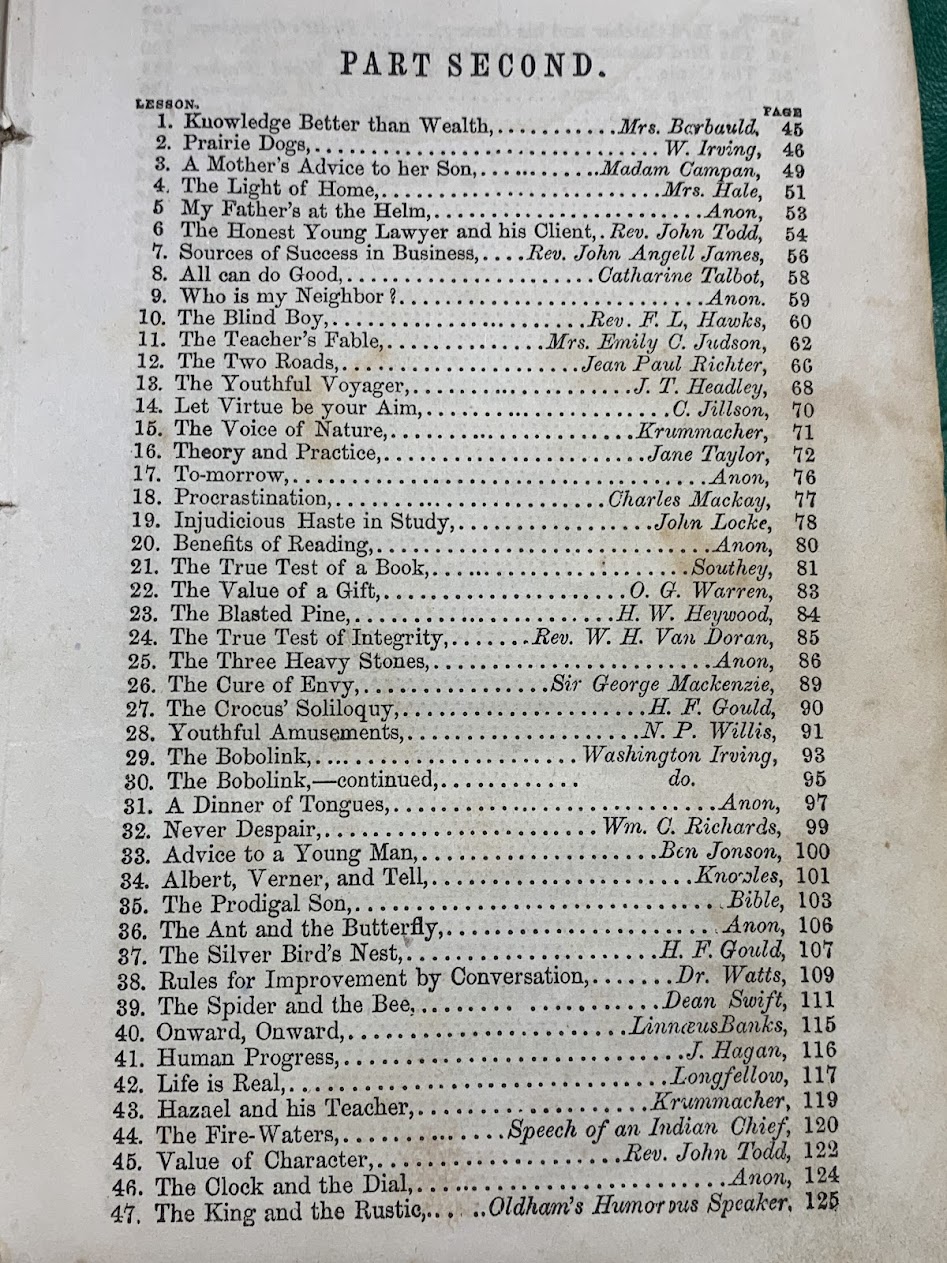 PART SECOND.
LESSON. PAGE
1. Knowledge Better than Wealth,...........Mrs. Barbauld, 45
2. Prairie Dogs,................................. W. Irving, 46
3. A Mother's Advice to her Son,............Madam Campan, 49
4. The Light of Home,..........................Mrs. Hale, 51
5 My Father's at the Helm,.........................Anon, 53
6 The Honest Young Lawyer and his Client,. Rev. John Todd, 54
7. Sources of Success in Business,....Rev. John Angell James, 56
8. All can do Good,.......................Catharine Talbot, 58
9. Who is my Neighbor?............................Anon. 59
10. The Blind Boy,.......................Rev. F. L, Hawks, 60
11. The Teacher's Fable,..............Mrs. Emily C. Judson, 62
12. The Two Roads,......................Jean Paul Richter, 66
13. The Youthful Voyager,....................J. T. Headley, 68
14. Let Virtue be your Aim,......................C. Jillson, 70
15. The Voice of Nature,.......................Krummacher, 71
16. Theory and Practice,.......................Jane Taylor, 72
17. To-morrow,......................................Anon, 76
18. Procrastination,.........................Charles Mackay, 77
19. Injudicious Haste in Study,..................John Locke, 78
20. Benefits of Reading,.............................Anon, 80
21. The True Test of a Book,.......................Southey, 81
22. The Value of a Gift,......................O. G. Warren, 83
23. The Blasted Pine,........................H. W. Heywood, 84
24. The True Test of Integrity,........Rev. W. H. Van Doran, 85
25. The Three Heavy Stones,..........................Anon, 86
26. The Cure of Envy,.................Sir George Mackenzie, 89
27. The Crocus' Soliloquy,......................H. F. Gould, 90
28. Youthful Amusements,......................N. P. Willis, 91
29. The Bobolink,........................Washington Irving, 93
30. The Bobolink,—continued,............ do. 95
31. A Dinner of Tongues,..............................Anon, 97
32. Never Despair,.........................Wm. C. Richards, 99
33. Advice to a Young Man,.....................Ben Jonson, 100
34. Albert, Verner, and Tell,......................Knowles, 101
35. The Prodigal Son,................................Bible, 103
36. The Ant and the Butterfly,........................Anon, 106
37. The Silver Bird's Nest,.....................H. F. Gould, 107
38. Rules for Improvement by Conversation,.......Dr. Watts, 109
39. The Spider and the Bee,....................Dean Swift, 111
40. Onward, Onward,........................LinnæusBanks, 115
41. Human Progress,.............................J. Hagan, 116
42. Life is Real,.................................Longfellow, 117
43. Hazael and his Teacher,....................Krummacher, 119
44. The Fire-Waters,.............Speech of an Indian Chief, 120
45. Value of Character,.....................Rev. John Todd, 122
46. The Clock and the Dial,..........................Anon, 124
47. The King and the Rustic,.... ..Oldham's Humorous Speaker. 125